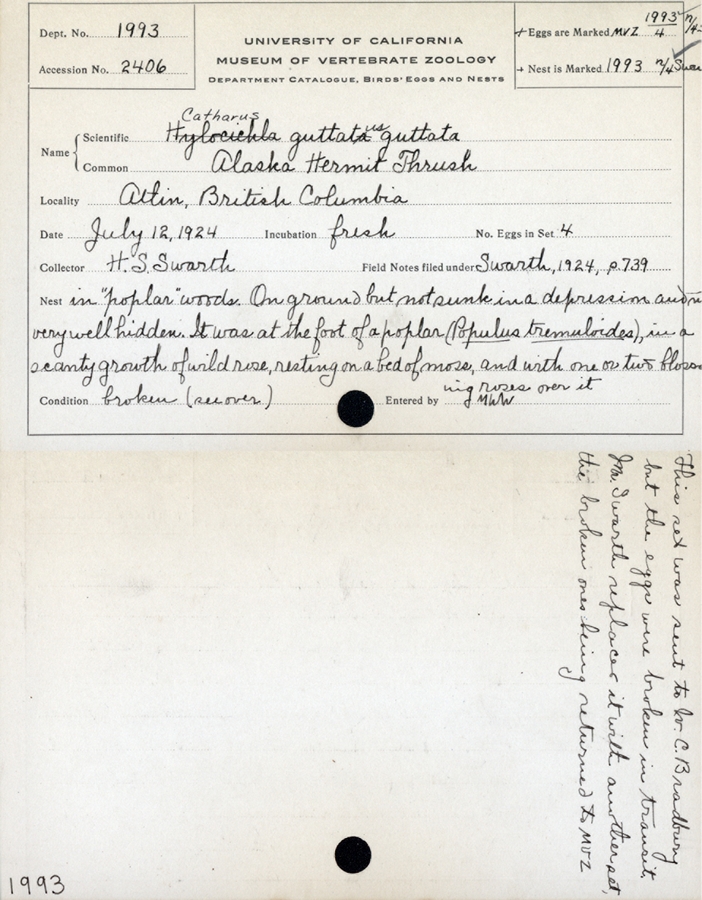 Dept. No. 1993
Accession No. 2406
UNIVERSITY OF CALIFORNIA
MUSEUM OF VERTEBRATE ZOOLOGY
DEPARTMENT CATALOGUE, BIRDS' EGGS AND NESTS
+ Eggs are Marked MVZ 1993/4 n/4
→ Nest is Marked 1993 n/4 Swar
Catharus
Name { Scientific Hylocichla guttata us guttata
Common Alaska Hermit Thrush
Locality Atlin, British Columbia
Date July 12, 1924 Incubation fresh No. Eggs in Set 4
Collector H. S. Swarth Field Notes filed under Swarth, 1924, p. 739
Nest in "poplar" woods. On ground but not sunk in a depression and n
very well hidden. It was at the foot of a poplar (Populus tremuloides), in a
scanty growth of wild rose, resting on a bed of moss, and with one or two blosso
ing roses over it
Condition broken (see over) Entered by MWW
This set was sent to W. C. Bradbury
but the eggs were broken in transit.
Mr. Swarth replaces it with another set,
the broken ones being returned to MVZ
1993